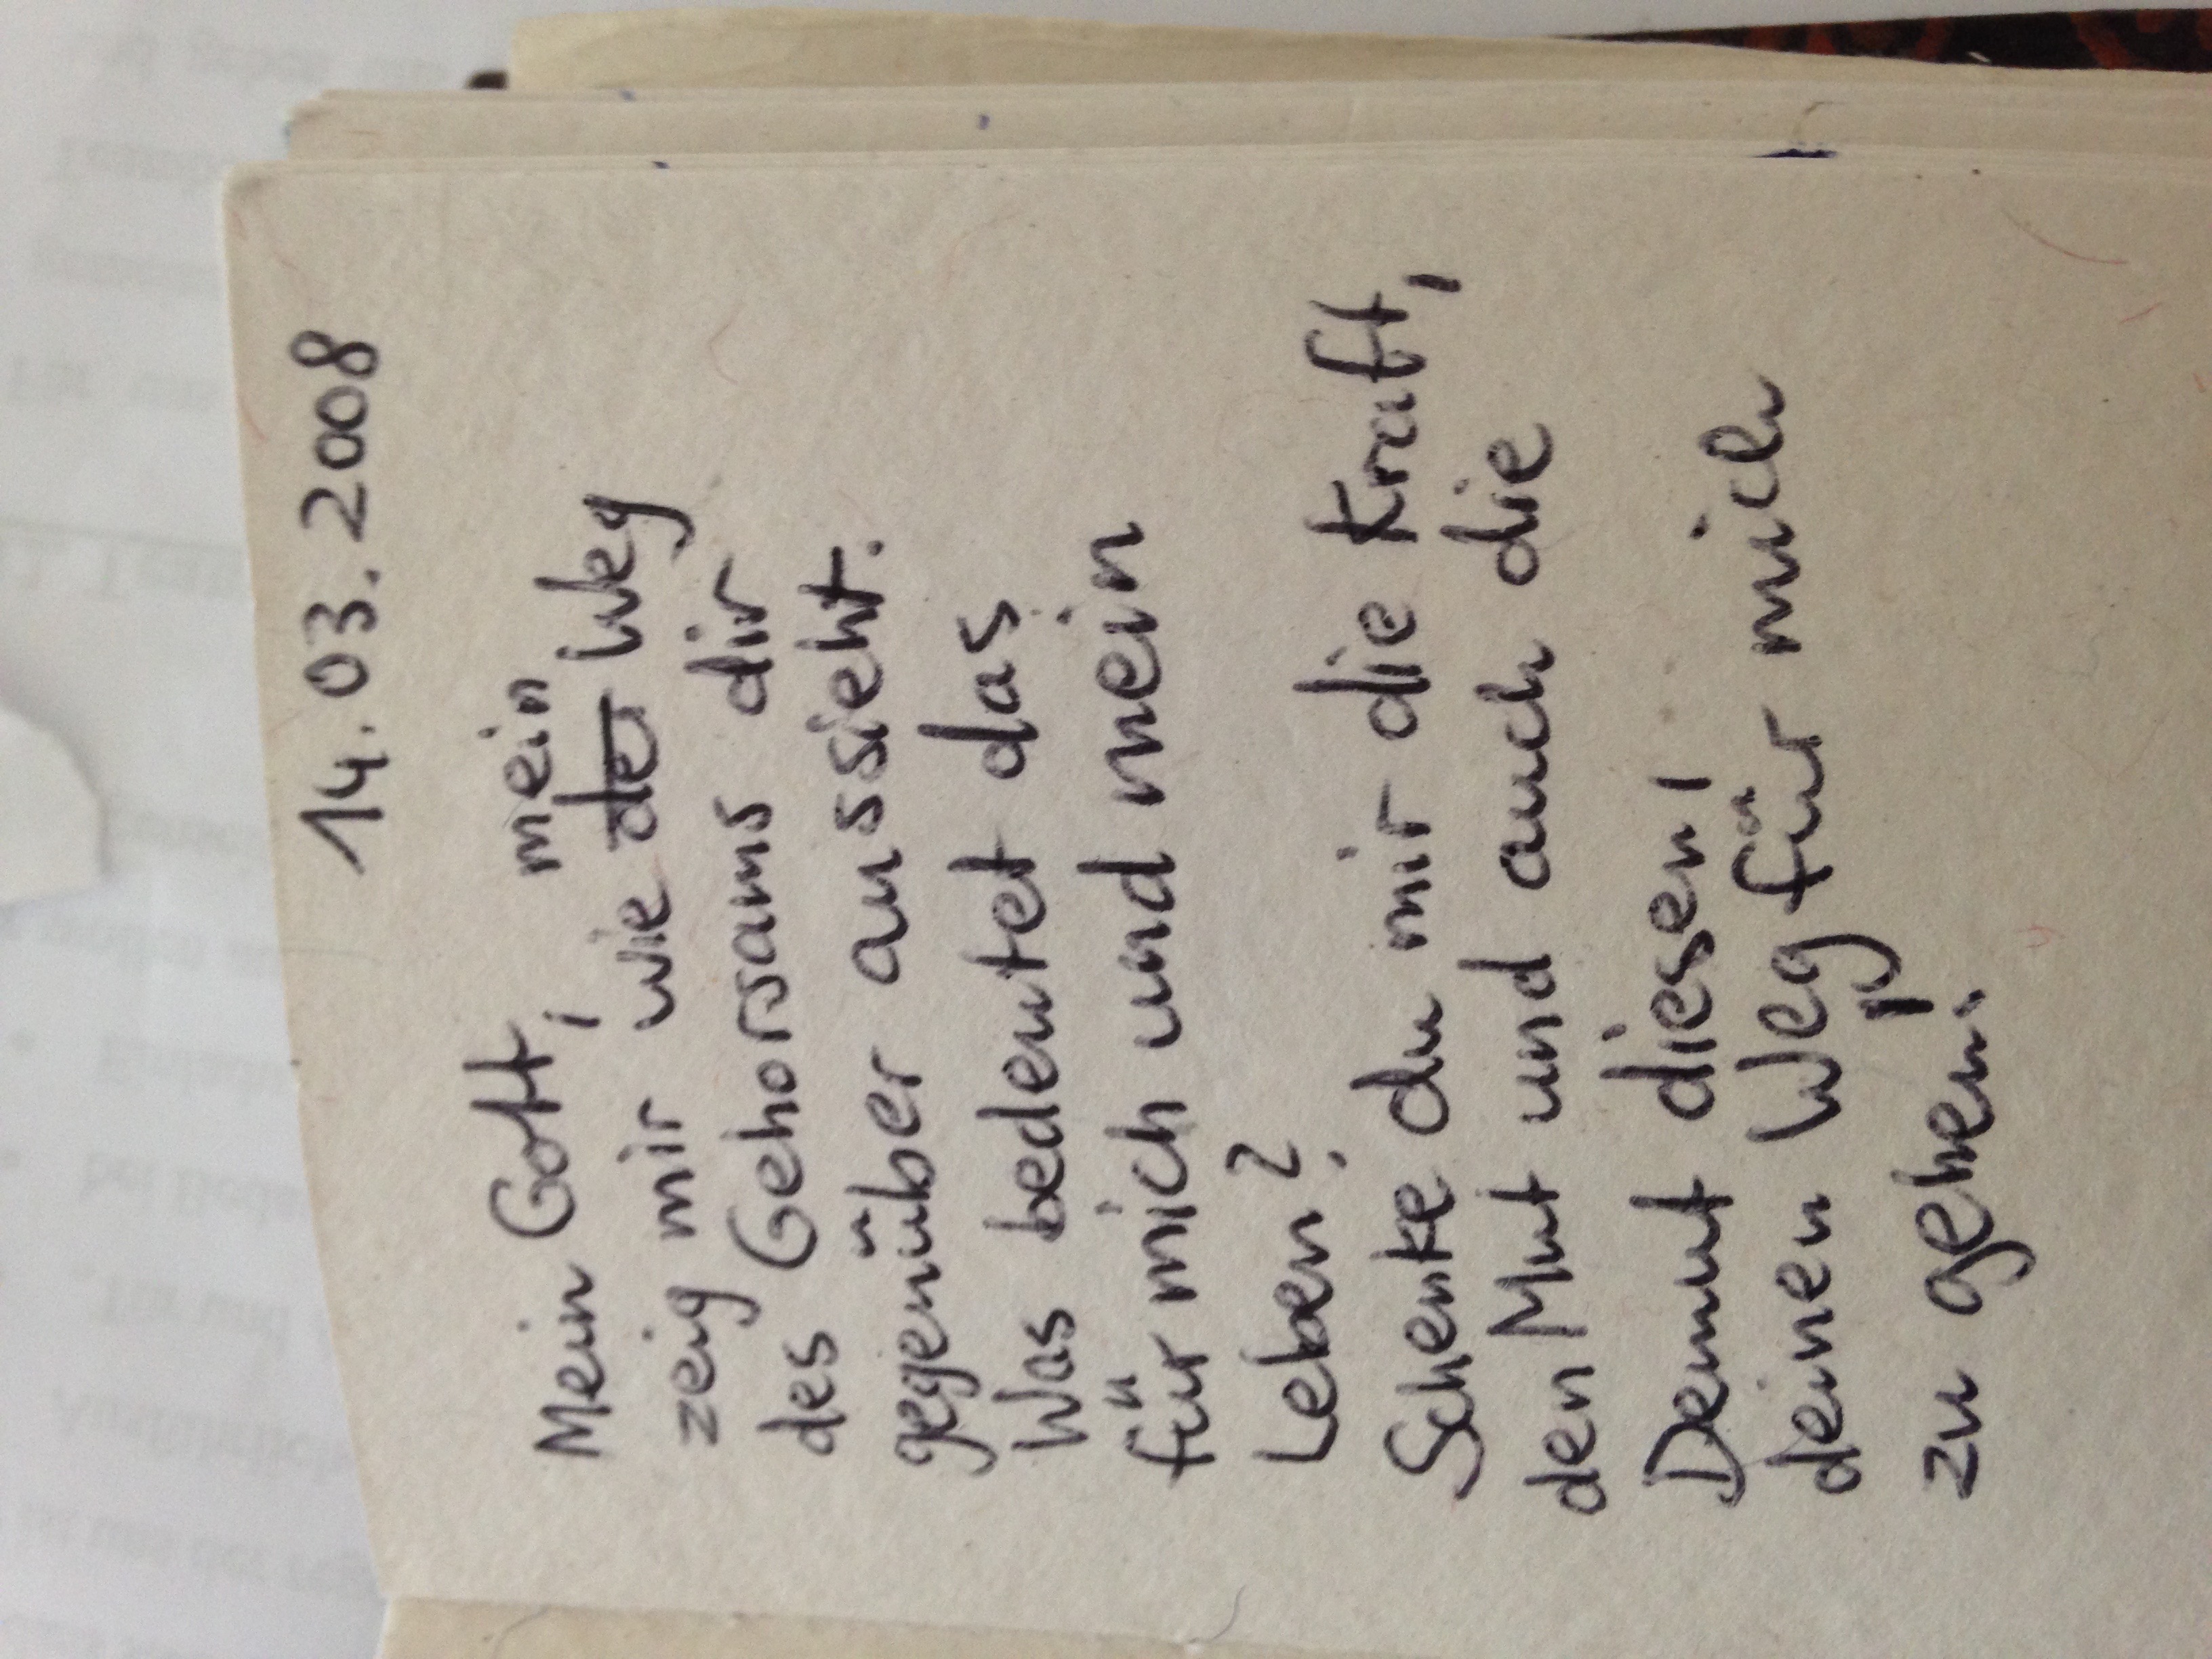 14.03.2008
Mein Gott, mein
zeig mir, wie der Weg
des Gehorsams dir
gegenüber aussieht.
Was bedeutet das
für mich und mein
Leben?
Schenke du mir die Kraft,
den Mut und auch die
Demut diesen,
deinen Weg für mich
zu gehen.